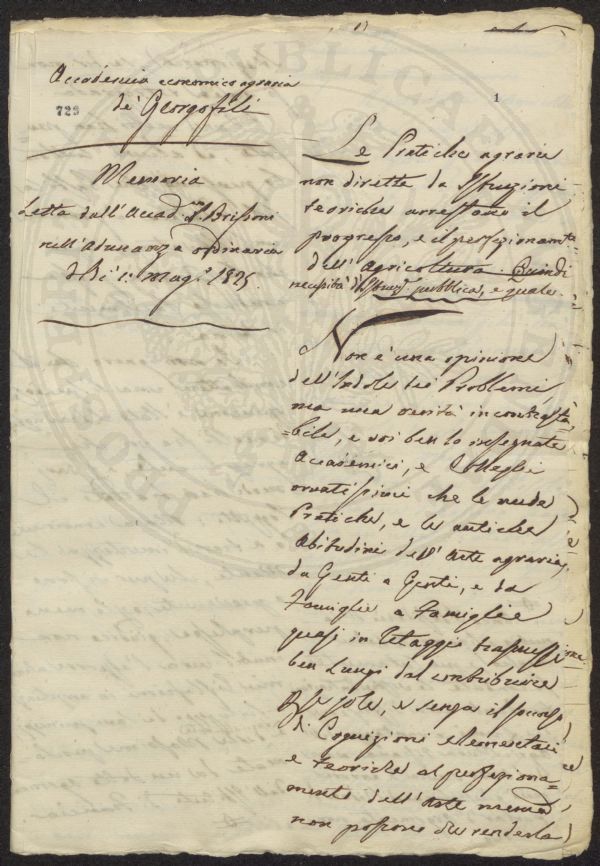 Accademia economico agraria
de' Georgofili
723
Memoria
Letta dall'Accad. Brissoni
nell'Adunanza ordinaria
1825.
1
Le Pratiche agrarie
non dirette da Istruzioni
teoriche arrestano il
progresso, e il perfezionamto
dell'Agricoltura. Quindi
necessità d'Istruz. pubblica, e quale.
Non è una opinione
dell'Indole de' Problemi,
ma una verità incontrasta-
=bile, e voi ben lo insegnate
Accademici, e Colleghi
ornatissimi che le nude
Pratiche, e le antiche
Abitudini dell'Arte agraria,
da Genti a Genti, e da
Famiglie a Famiglie
quasi in Retaggio trasmesse
ben lungi dal contribuire
sole, e senza il
di Cognizioni elementari
e teoriche al perfeziona-
mento dell'Arte
non possono che renderla